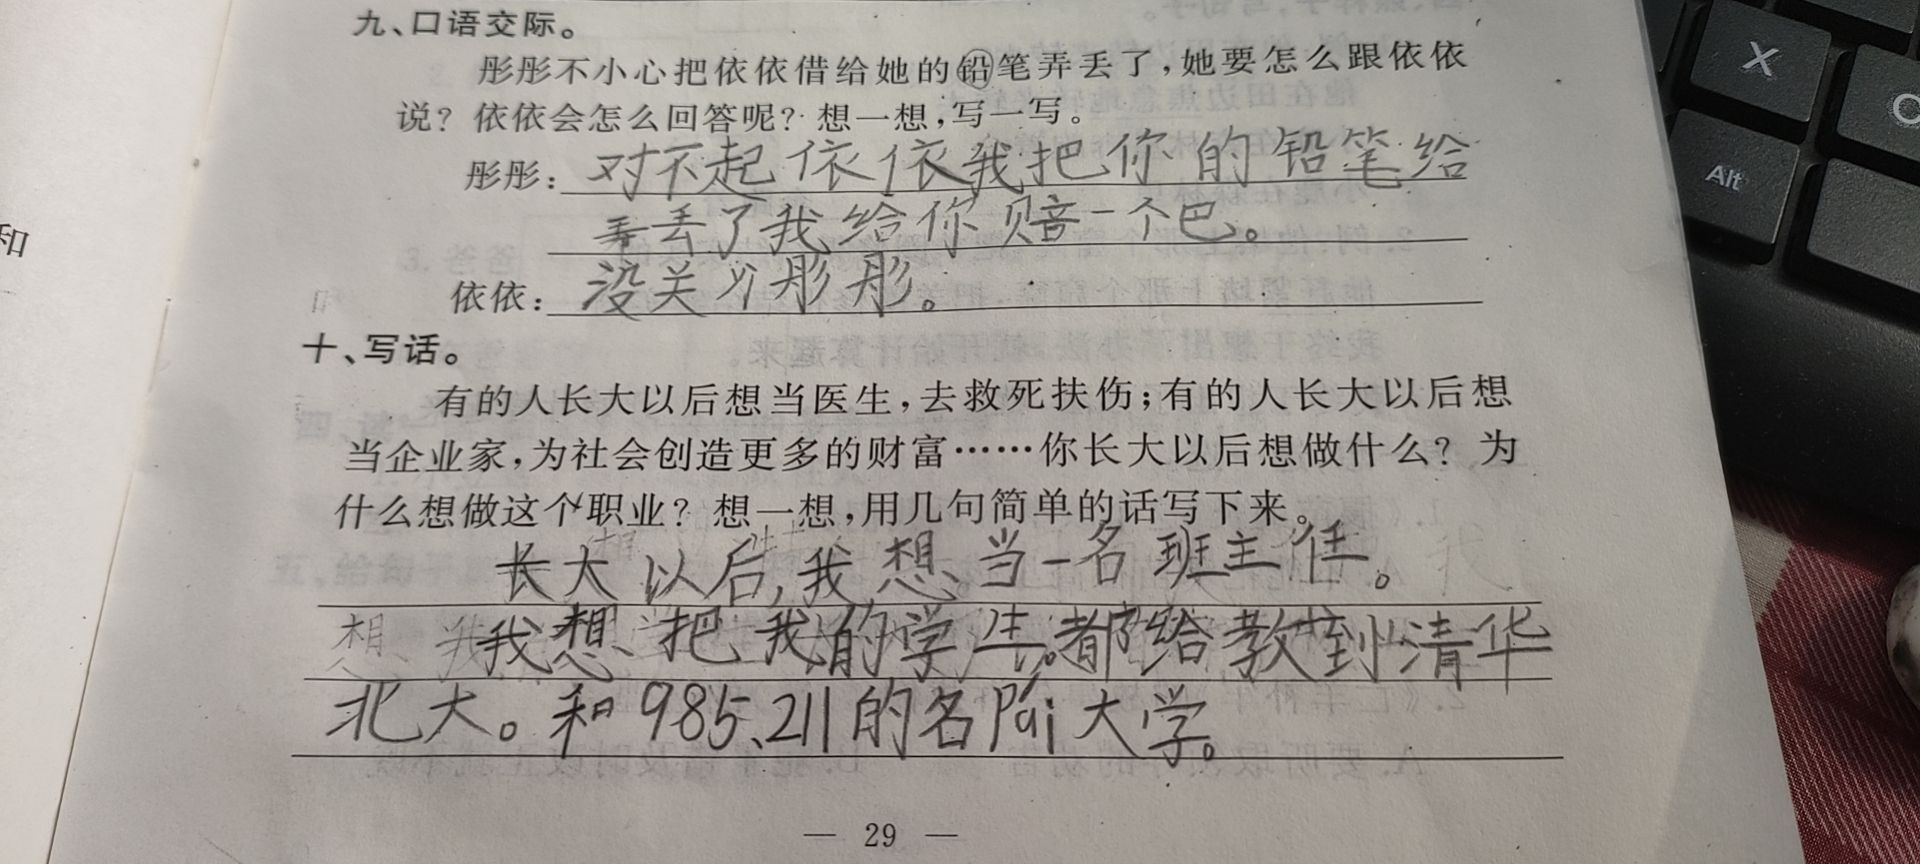 九、口语交际。
彤彤不小心把依依借给她的铅笔弄丢了，她要怎么跟依依
说？依依会怎么回答呢？想一想，写一写。
彤彤：对不起依依我把你的铅笔给
弄丢了我给你赔一个巴。
依依：没关彤彤。
十、写话。
有的人长大以后想当医生，去救死扶伤；有的人长大以后想
当企业家，为社会创造更多的财富……你长大以后想做什么？为
什么想做这个职业？想一想，用几句简单的话写下来。
长大以后，我想当一名班主任。
我想把我的学生。都给教到清华
北大。和985、211的名Pai大学。
— 29 —
和
X
Alt